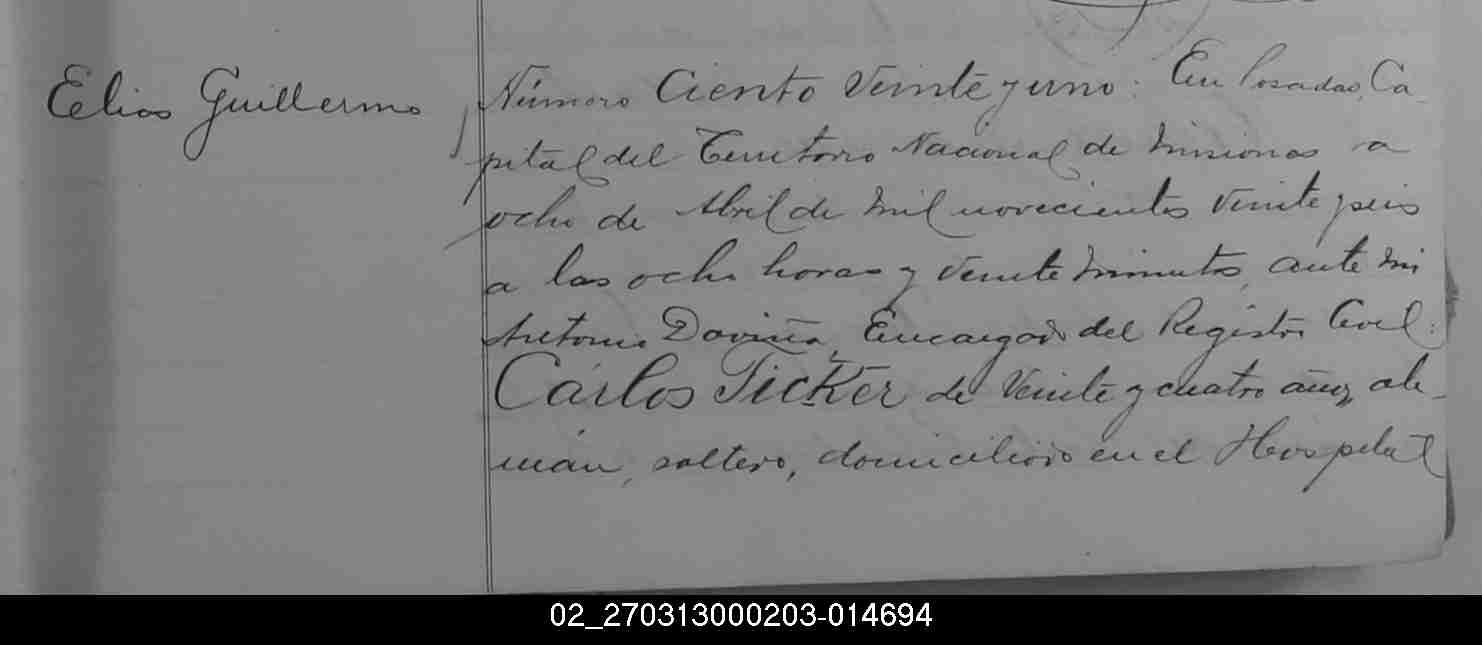 Eelias Guillermo
Número Ciento Veinte y uno: En Posadas, Ca-
pital del Territorio Nacional de Misiones a
ocho de Abril de mil novecientos veinte y seis
a las ocho horas y veinte minutos, ante mi
Antonio Daviña, Encargado del Registro Civil:
Cárlos Ticker de veinte y cuatro años, ale-
mán, soltero, domiciliado en el Hospital
02_270313000203-014694